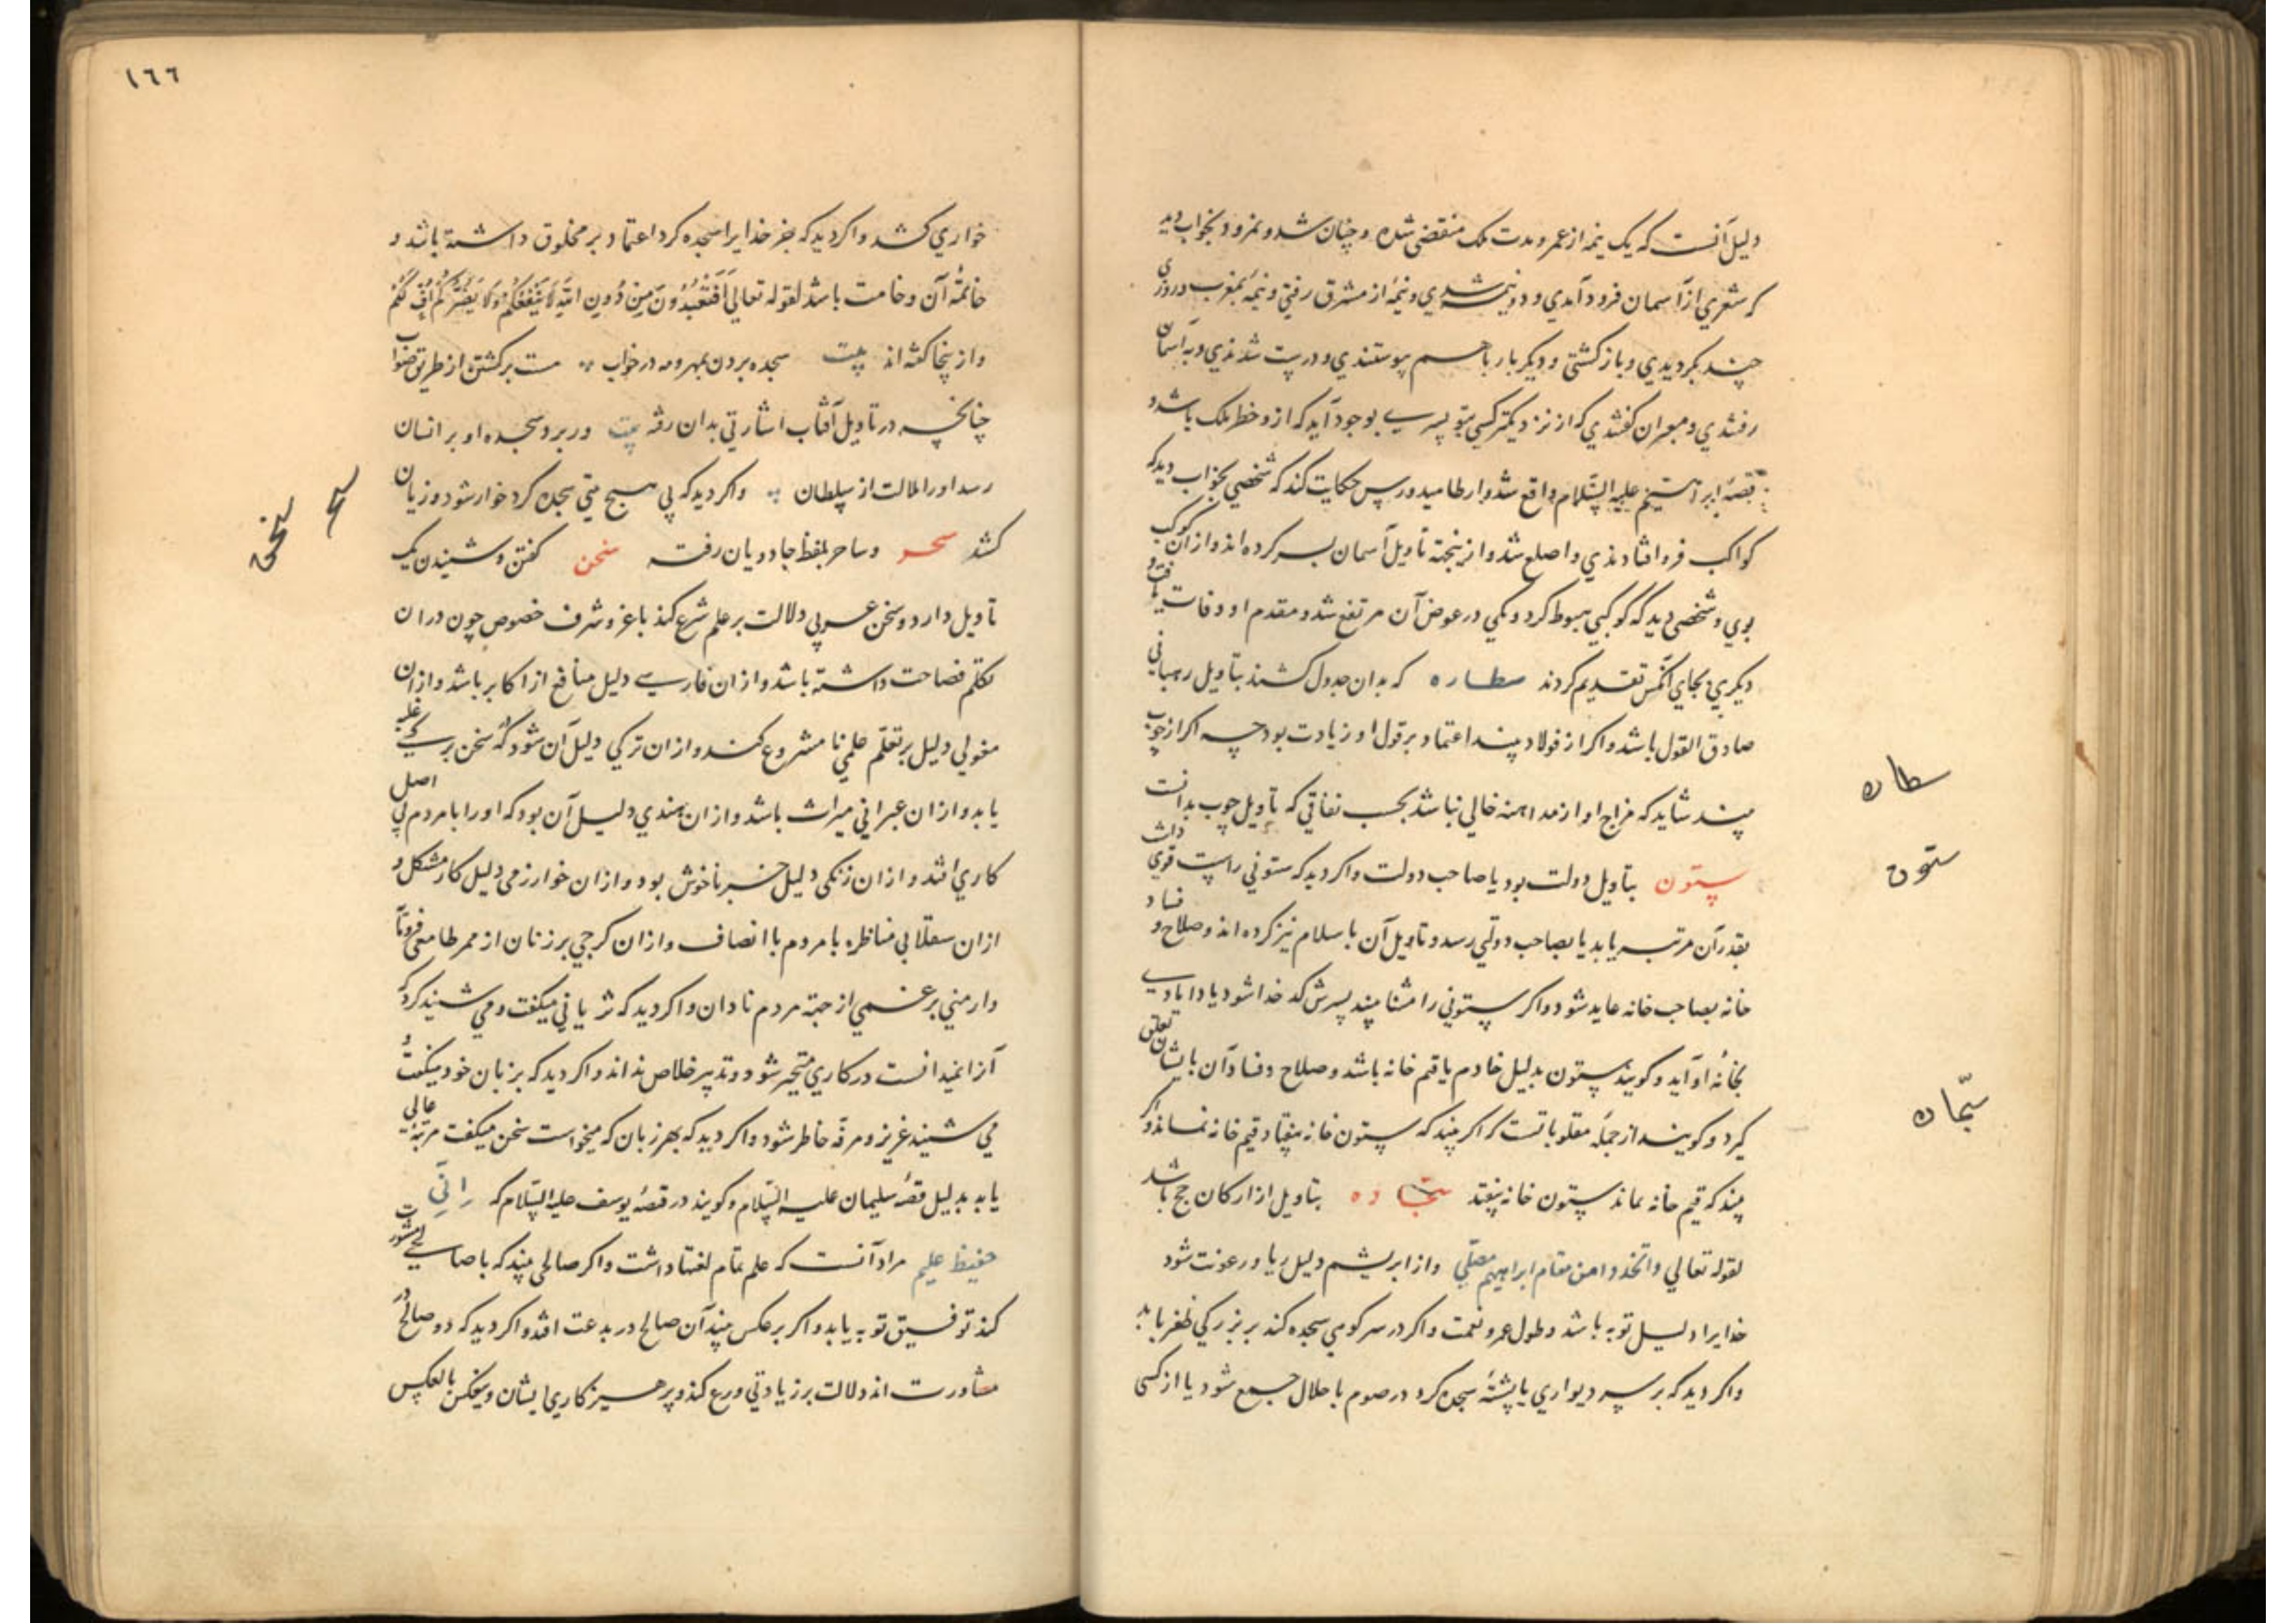 دلیل آنست که یک نیمه از عمر و مدت ملک منقضی شده و چنان شد و نمرود بخواب دید
که شعری از آسمان فرود آمدی و دو نیمه شدی و نیمهٔ از مشرق رفتی و نیمهٔ بمغرب و روزی
چند بگردیدی و باز گشتی و دیگر بار باهم پیوستندی و درست شدندی و به آسمان
رفتندی و معبران گفتندی که از نزدیکتر کسی بتو پسری بوجود آید که ازو خطر ملک باشد و
قصهٔ ابراهیم علیه السّلام واقع شد و ارطامیدورس حکایت کند که شخصی بخواب دید که
کواکب فرو افتادندی و اصلع شد و ازینجهة تاویل آسمان بسر کرده‌اند و از آن کوکب
بموی و شخصی دید که کوکبی هبوط کرد و یکی در عوض آن مرتفع شد و مقدم او وفات یافت و
دیگری بجای آنکس تقدیم کردند سطاره که بدان جدول کشند بتاویل رهبانی
صادق القول باشد و اکر از فولاد بیند اعتماد بر قول او زیادت بود چه اکر از چوب
بیند شاید که مزاج او از مداهنه خالی نباشد بحسب نفاقی که تاویل چوب بدانست
ستون بتاویل دولت بود یا صاحب دولت و اکر دید که ستونی راست قوی داشت
بقدر آن مرتبه یابد یا بصاحب دولتی رسد و تاویل آن باسلام نیز کرده‌اند و صلاح و فساد
خانه بصاحب خانه عاید شود و اکر ستونی را مثنا بیند پسرش کدخدا شود یا دامادی
بخانهٔ او آید و کویند ستون بدلیل خادم یا قیم خانه باشد و صلاح و فساد آن بایشان تعلق
گیرد و کویند از جملهٔ مقلوباتست که اکر بیند که ستون خانه بیفتاد قیم خانه نماند و اکر
بیند که قیم خانه نماند ستون خانه بیفتد سجّاده بتاویل از ارکان حج باشد
لقوله تعالی واتخذوا من مقام ابراهیم مصلّی و از ابریشم دلیل ریا و رعونت شود
خدایرا دلیل توبه باشد و طول عمر و نعمت و اکر در سر کوهی سجده کند بر بزرکی ظفر یابد
و اکر دید که بر سر دیواری یا پشتهٔ سجده کرد در صوم با حلال جمع شود یا از کسی
سطاره
ستون
سجّاده
١٦٦
خواری کشد و اکر دید که جز خدایرا سجده کرد اعتماد بر مخلوق داشته باشد و
خاتمهٔ آن وخامت باشد لقوله تعالی أَفَتَعْبُدُونَ مِنْ دُونِ اللهِ لَا يَنْفَعُكُمْ وَلَا يَضُرُّكُمْ أُفٍّ لَكُمْ
و از ینجا کفته‌اند بیت سجده بردن بمهر و مه در خواب هست برکشتن از طریق صواب
چنانچه در تاویل آفتاب اشارتی بدان رفته بیت ور برد سجده او بر انسان
رسد او را ملالت از سلطان و اکر دید که بی هیچ نیتی سجده کرد خوار شود و زیان
کشد سحر و ساحر بلفظ جادویان رفته سخن کفتن و شنیدن یک
تاویل دارد و سخن عربی دلالت بر علم شرع کند با عز و شرف خصوص چون در آن
تکلم فصاحت داشته باشد و از ان فارسی دلیل منافع از اکابر باشد و از ان
مغولی دلیل بر تعلّم علمی نامشروع کند و از ان ترکی دلیل آن شود که سخن بر کسی غلبه
یابد و از ان عبرانی میراث باشد و از ان هندی دلیل آن بود که او را با مردم بی اصل
کاری افتد و از ان زنکی دلیل خبر ناخوش بود و از ان خوارزمی دلیل کار مشکل و
از ان سقلابی مناظره با مردم با انصاف و از ان کرجی بر زنان از ممر طامعی فروتر
و ارمنی بر غمی از جهة مردم نادان و اکر دید که سریانی میکفت و می شنید که
آنرا نمیدانست در کاری متحیر شود و تدبیر خلاص نداند و اکر دید که بزبان خود میکفت و
می شنید عزیز و مرفّه خاطر شود و اکر دید که بهر زبان که میخواست سخن میکفت مرتبهٔ عالی
یابد بدلیل قصهٔ سلیمان علیه السّلام و کویند در قصهٔ یوسف علیه السّلام که انّی
حفیظ علیم مراد آنست که علم تمام لغتها داشت و اکر صالحی بیند که با صالحی مشورت
کند توفیق توبه یابد و اکر برعکس بیند آن صالح در بدعت افتد و اکر دید که دو صالح در
مشاورت‌اند دلالت بر زیادتی ورع کند و پرهیزکاری ایشان و بعکس بالعکس
سخن